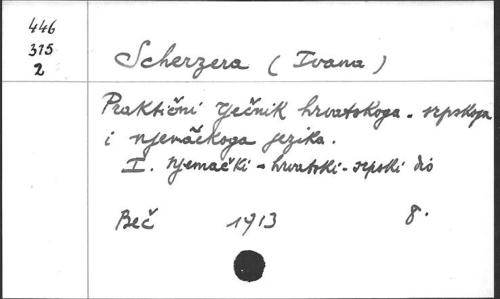 446
315
2
Scherzera ( Ivana )
Praktični rječnik hrvatskoga - srpskoga
i njemačkoga jezika.
I. njemački - hrvatski - srpski dio
Beč 1913 8.